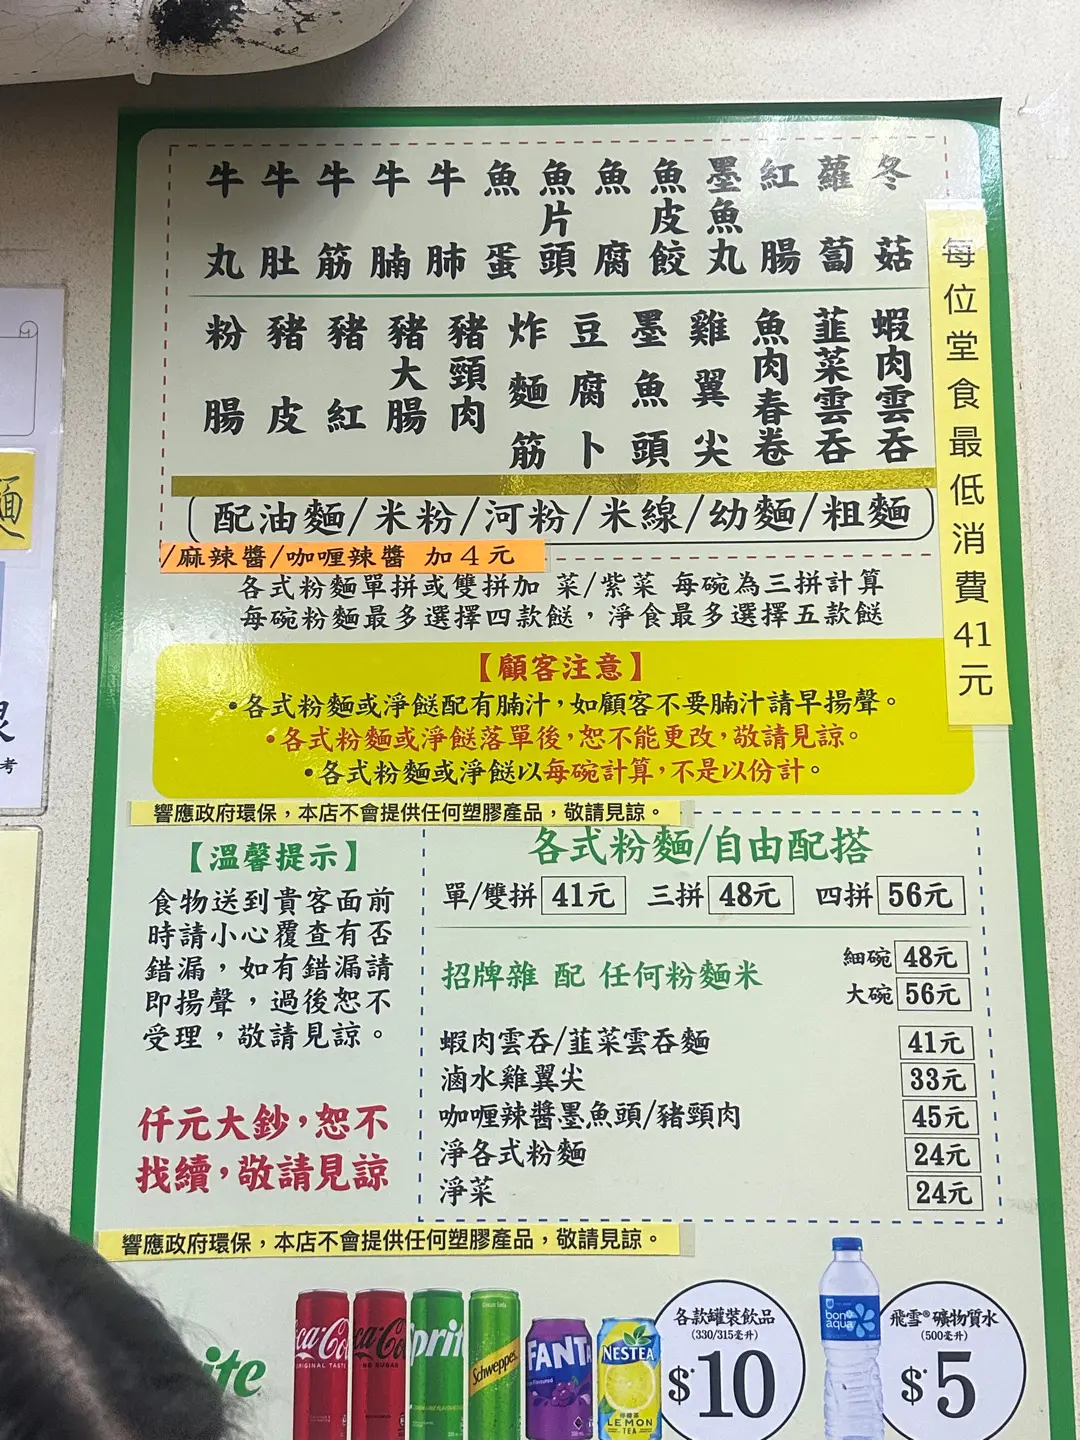 牛丸 牛肚 牛筋 牛腩 牛肺 魚蛋 魚片頭 魚腐 魚皮餃 墨魚丸 紅腸 蘿蔔 冬菇
粉腸 豬皮 豬紅 豬大腸 豬頸肉 炸麵筋 豆腐卜 墨魚頭 雞翼尖 魚肉春卷 韮菜雲吞 蝦肉雲吞
每位堂食最低消費41元
配油麵/米粉/河粉/米線/幼麵/粗麵
/麻辣醬/咖喱辣醬 加4元
各式粉麵單拼或雙拼加 菜/紫菜 每碗為三拼計算
每碗粉麵最多選擇四款餸，淨食最多選擇五款餸
【顧客注意】
•各式粉麵或淨餸配有腩汁，如顧客不要腩汁請早揚聲。
•各式粉麵或淨餸落單後，恕不能更改，敬請見諒。
•各式粉麵或淨餸以每碗計算，不是以份計。
響應政府環保，本店不會提供任何塑膠產品，敬請見諒。
【溫馨提示】
食物送到貴客面前
時請小心覆查有否
錯漏，如有錯漏請
即揚聲，過後恕不
受理，敬請見諒。
仟元大鈔，恕不
找續，敬請見諒
各式粉麵/自由配搭
單/雙拼 41元 三拼 48元 四拼 56元
招牌雜 配 任何粉麵米
細碗 48元
大碗 56元
蝦肉雲吞/韮菜雲吞麵 41元
滷水雞翼尖 33元
咖喱辣醬墨魚頭/豬頸肉 45元
淨各式粉麵 24元
淨菜 24元
響應政府環保，本店不會提供任何塑膠產品，敬請見諒。
ite
ca-Co
ORIGINAL TASTE
ca-Co
NO SUGAR
prit
Cream Soda
Schweppes
FANT
NESTEA
檸檬茶
LEMON
TEA
各款罐裝飲品
(330/315毫升)
$10
bon
aqua
飛雪® 礦物質水
(500毫升)
$5
麵
考